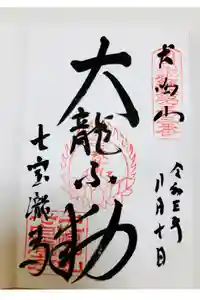 犬鳴山
令和三年
八月十日
大龍不動
七宝瀧寺